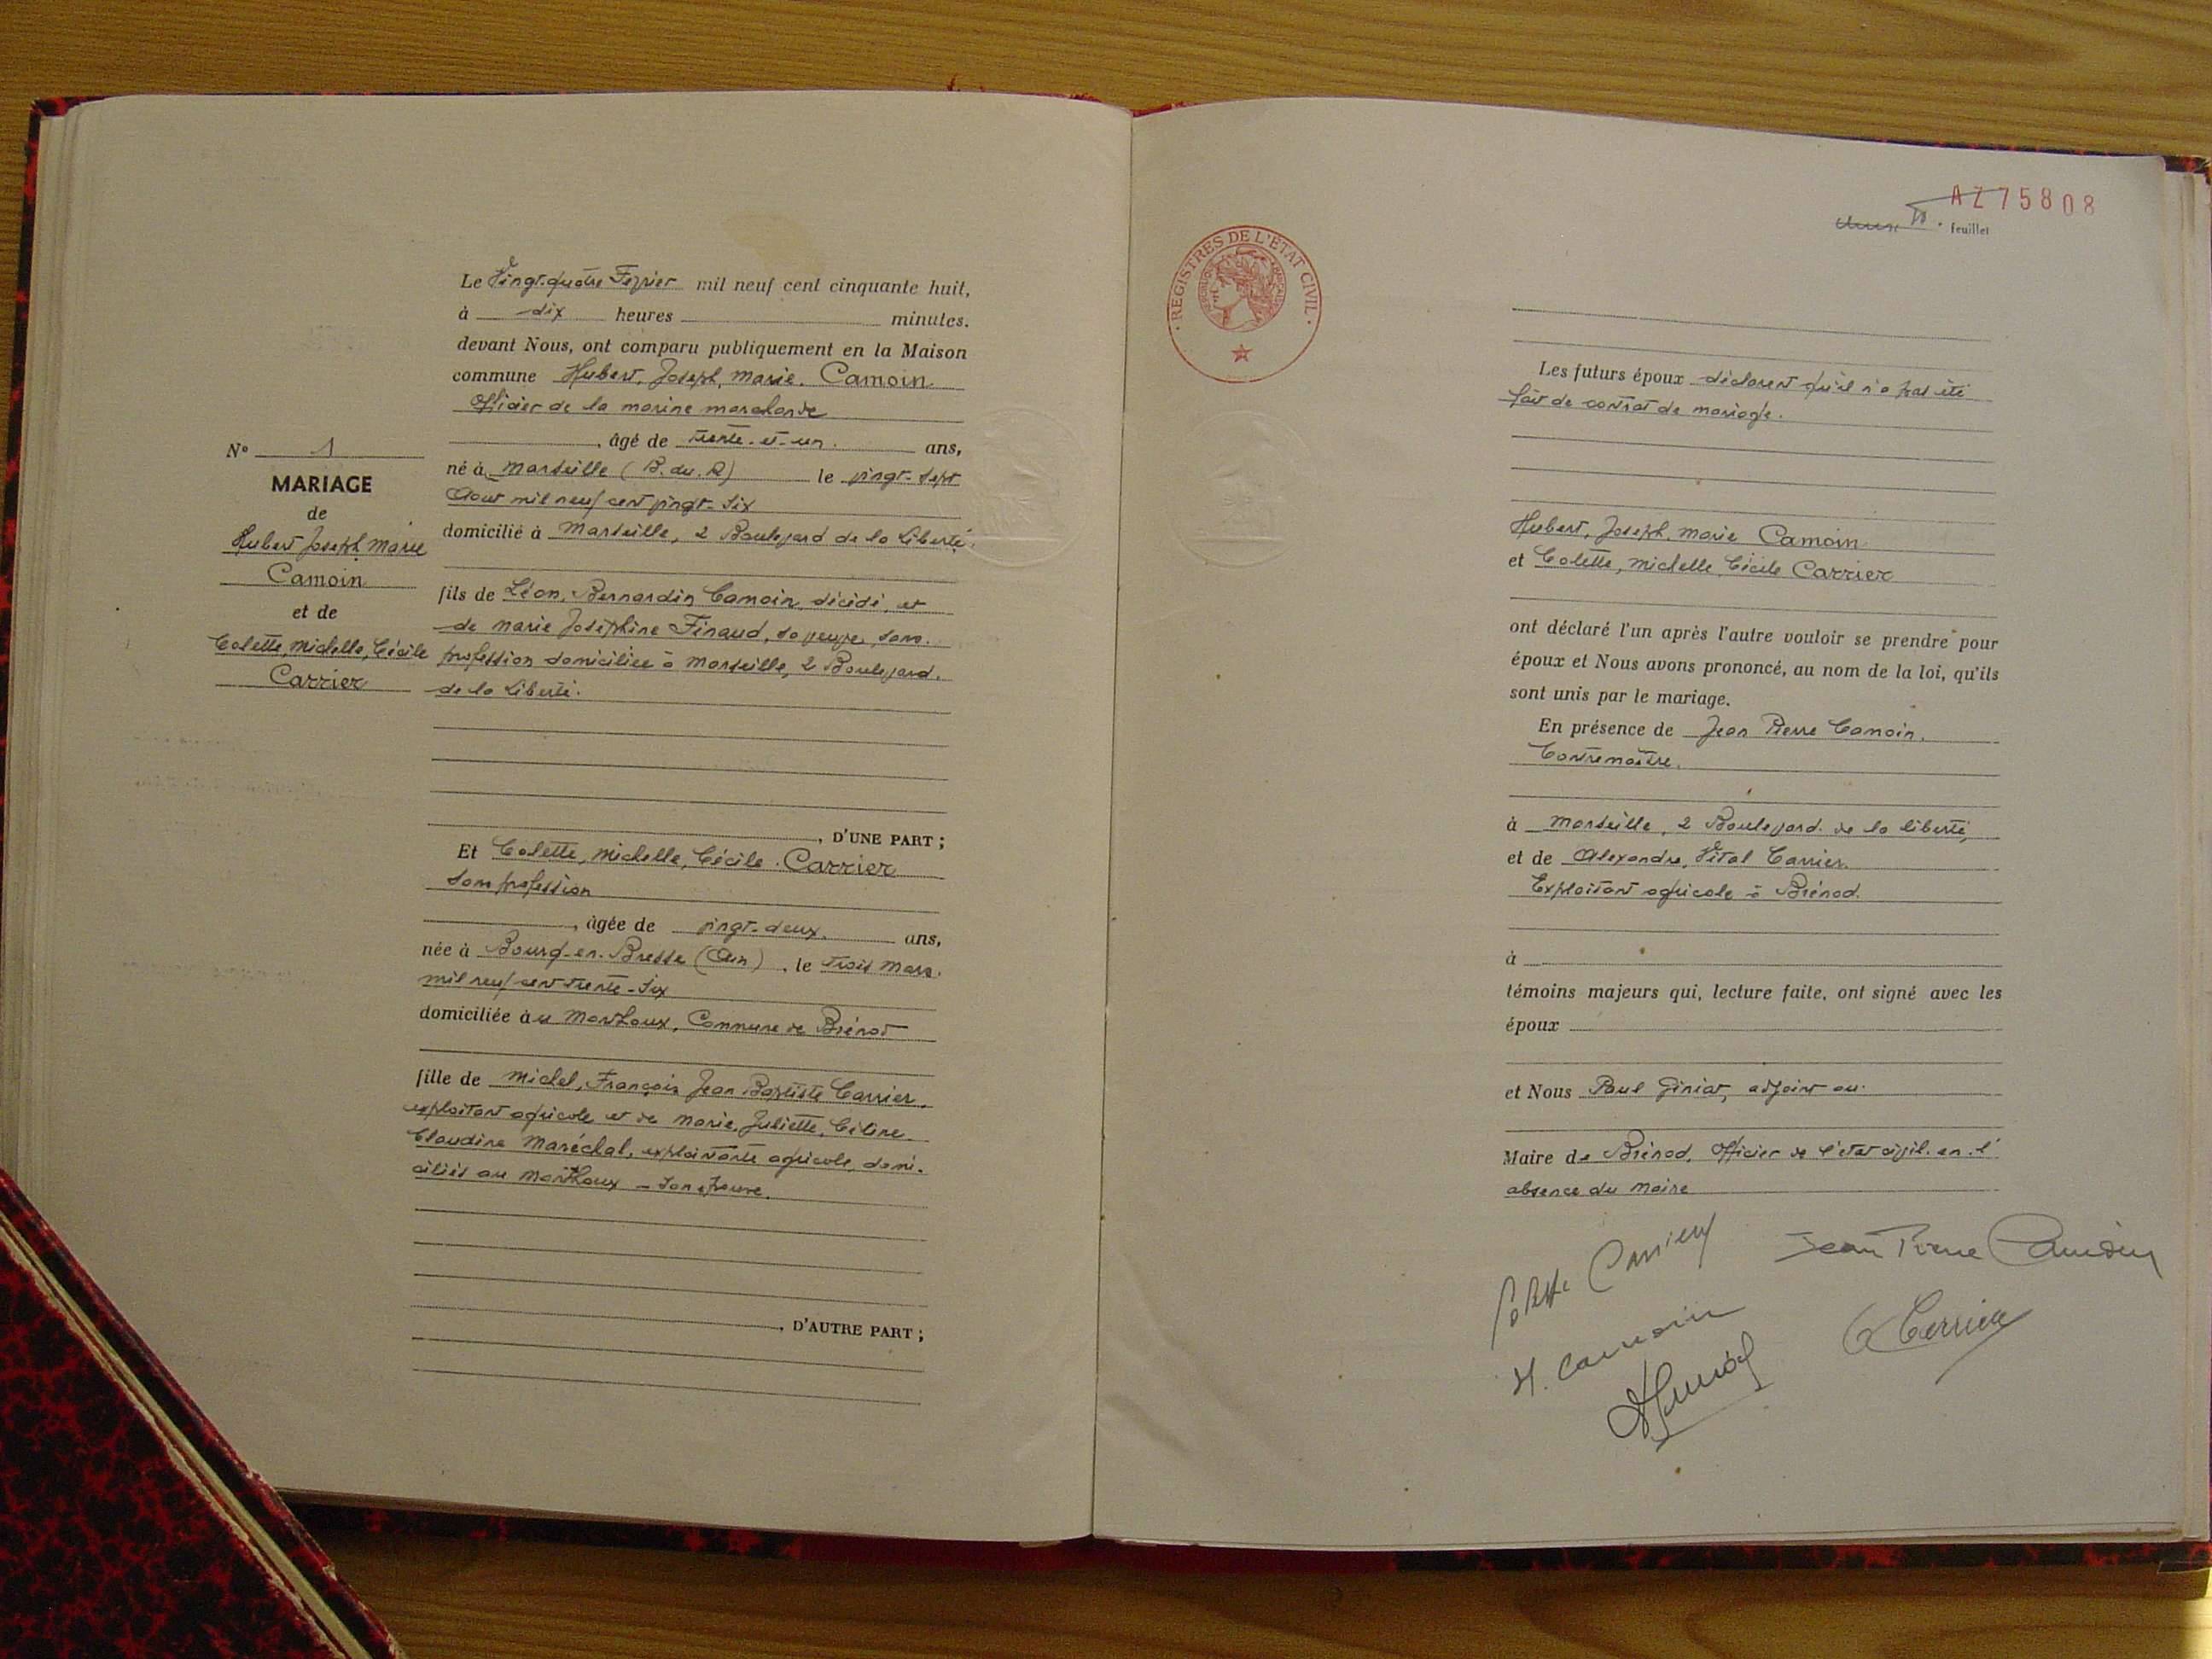 N° 1
MARIAGE
de
Hubert Joseph Marie
Camoin
et de
Colette, Michelle, Cécile
Carrier
Le Vingt-quatre Fevrier mil neuf cent cinquante huit,
à dix heures minutes.
devant Nous, ont comparu publiquement en la Maison
commune Hubert, Joseph, Marie. Camoin
Officier de la marine marchande
, âgé de trente-et-un. ans,
né à Marseille (B. du. R) le vingt-sept
Aout mil neuf cent vingt-six
domicilié à Marseille, 2 Boulevard de la Liberté.
fils de Léon, Bernardin Camoin, décédé, et
de Marie Joséphine Finaud, sa veuve, sans.
profession domiciliée à Marseille, 2 Boulevard.
de la Liberté.
, D'UNE PART ;
Et Colette, Michelle, Cécile. Carrier
Sans profession
, âgée de vingt-deux. ans,
née à Bourg-en-Bresse (Ain) , le trois Mars.
mil neuf cent trente-six
domiciliée au Monthoux, Commune de Brénod
fille de Michel, François, Jean Baptiste Carrier,
exploitant agricole et de Marie, Juliette, Céline.
Claudine Maréchal, exploitante agricole, domi-
ciliés au Monthoux – son épouse.
, D'AUTRE PART ;
REGISTRES DE L'ÉTAT CIVIL
RÉPUBLIQUE FRANÇAISE
AZ75808
feuillet
Les futurs époux déclarent qu'il n'a pas été
fait de contrat de mariage.
Hubert, Joseph, Marie Camoin
et Colette, Michelle, Cécile Carrier
ont déclaré l'un après l'autre vouloir se prendre pour
époux et Nous avons prononcé, au nom de la loi, qu'ils
sont unis par le mariage.
En présence de Jean Pierre Camoin,
Contremaître.
à Marseille, 2 Boulevard. de la liberté,
et de Alexandre, Vital Carrier.
Exploitant agricole à Brénod.
à
témoins majeurs qui, lecture faite, ont signé avec les
époux
et Nous Paul Giniat, adjoint au.
Maire de Brénod, Officier de l'état civil. en l'
absence du Maire
Colette Carrier
Jean Pierre Camoin
H. Camoin
A Carrier